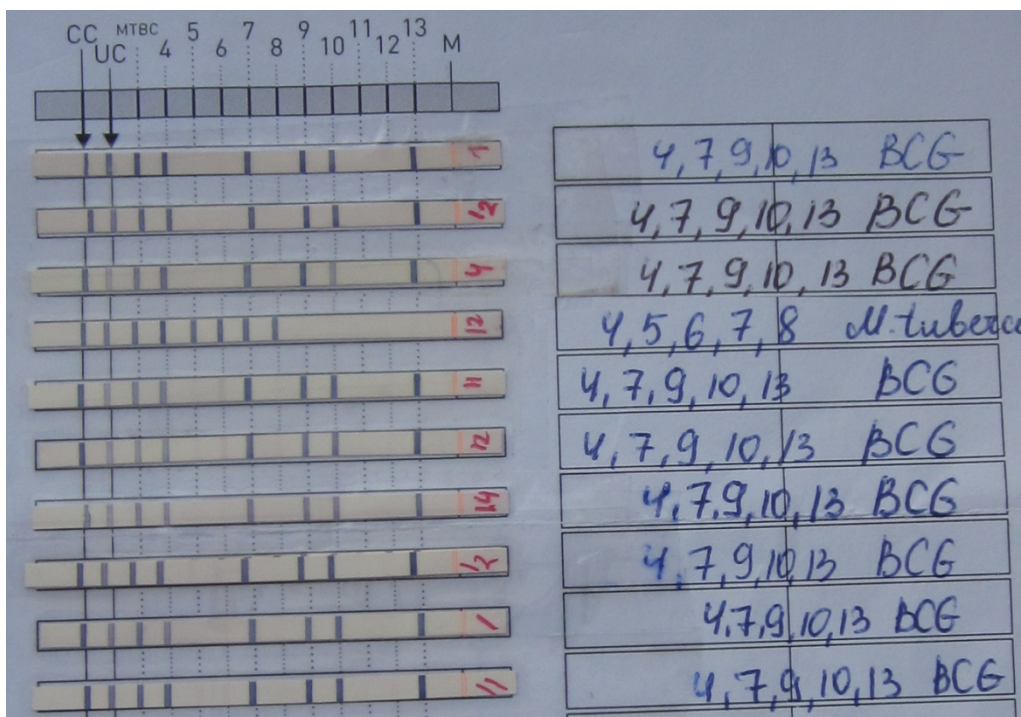 CC UC MTBC 4 5 6 7 8 9 10 11 12 13 M
1 4,7,9,10,13 BCG
12 4,7,9,10,13 BCG
4 4,7,9,10,13 BCG
12 4,5,6,7,8 M.tuberc
11 4,7,9,10,13 BCG
12 4,7,9,10,13 BCG
14 4,7,9,10,13 BCG
12 4,7,9,10,13 BCG
1 4,7,9,10,13 BCG
11 4,7,9,10,13 BCG